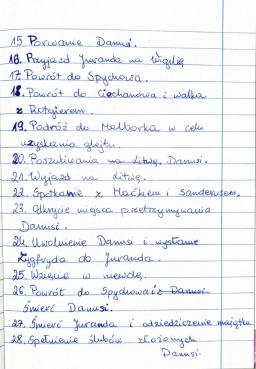 15. Porwanie Danusi.
16. Przyjazd Juranda na Wigilię
17. Powrót do Spychowa.
18. Powrót do Ciechanowa i walka
z Rotgierem.
19. Podróż do Malborka w celu
uzyskania glejtu.
20. Poszukiwania na Litwę, Danusi.
21. Wyjazd na Litwę.
22. Spotkanie z Maćkiem i Sanderusem.
23. Odkrycie miejsca przetrzymywania
Danusi.
24. Uwolnienie Danusi i wysłanie
Zygfryda do Juranda.
25. Wzięcie w niewolę.
26. Powrót do Spychowa i z Danusi
śmierć Danusi.
27. Śmierć Juranda i odziedziczenie majątku
28. Spełnienie ślubów złożonych
Danusi.